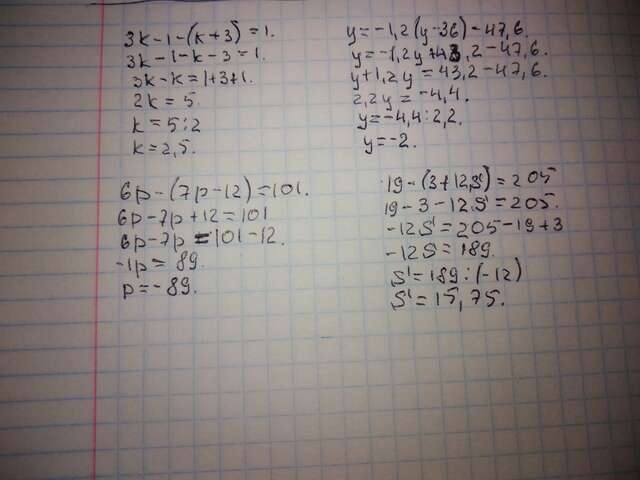 3k-1-(k+3)=1.
3k-1-k-3=1.
3k-k=1+3+1.
2k=5.
k=5:2
k=2,5.
y=-1,2(y-36)-47,6.
y=-1,2y+43,2-47,6.
y+1,2y=43,2-47,6.
2,2y=-4,4.
y=-4,4:2,2.
y=-2.
6p-(7p-12)=101.
6p-7p+12=101
6p-7p=101-12.
-1p=89.
p=-89.
19-(3+12S)=205
19-3-12S=205.
-12S=205-19+3
-12S=189.
S=189:(-12)
S=15,75.